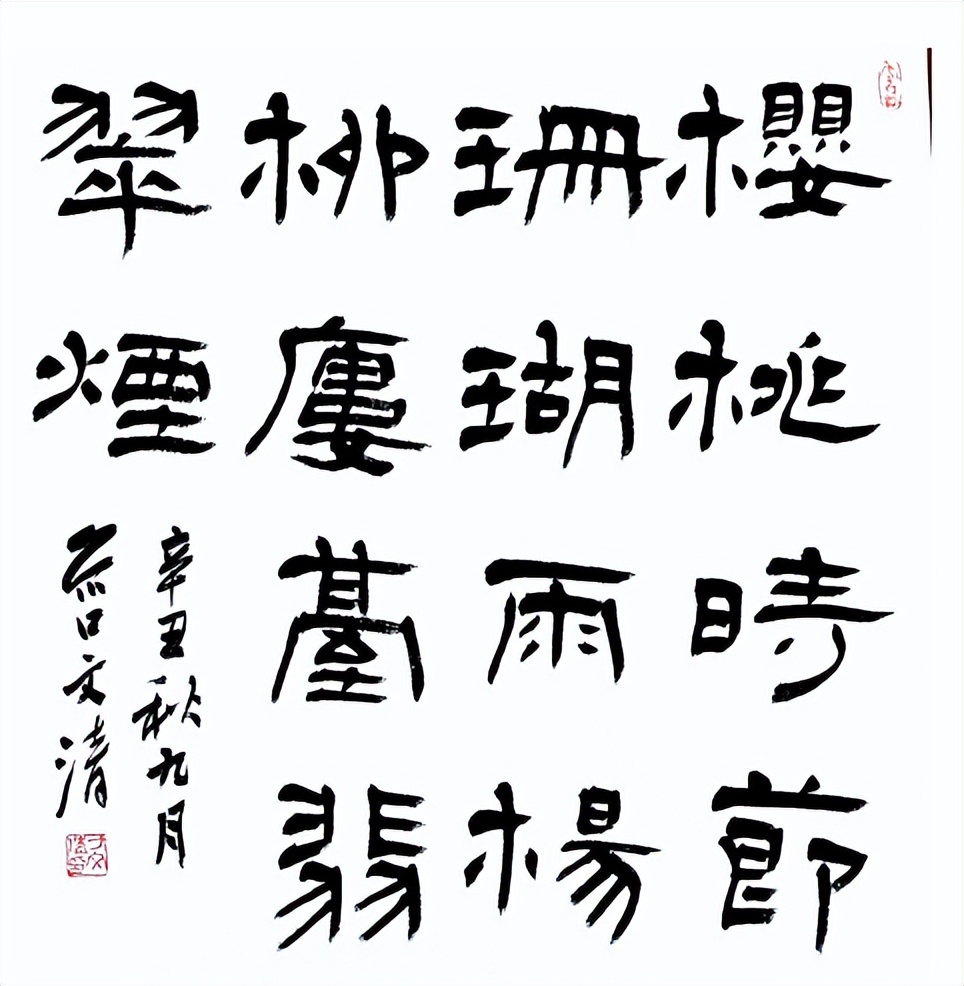 櫻桃時莭
珊瑚雨楊
柳廔臺翡
翠煙
辛丑秋九月
文清